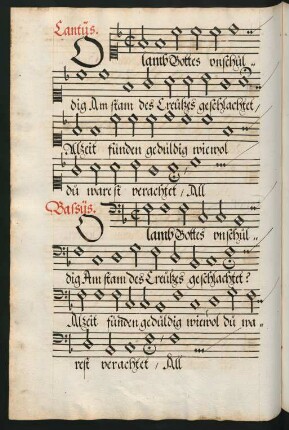 Cantus.
O lamb Gottes vnschül-
dig Am stam des Creützes geschlachtet
Allzeit funden gedüldig wiewol
dü warest verachtet / All
Bassus.
O lamb Gottes vnschül-
dig Am stam des Creützes geschlachtet?
Alzeit fünden gedüldig wiewol dü wa-
rest verachtet / All